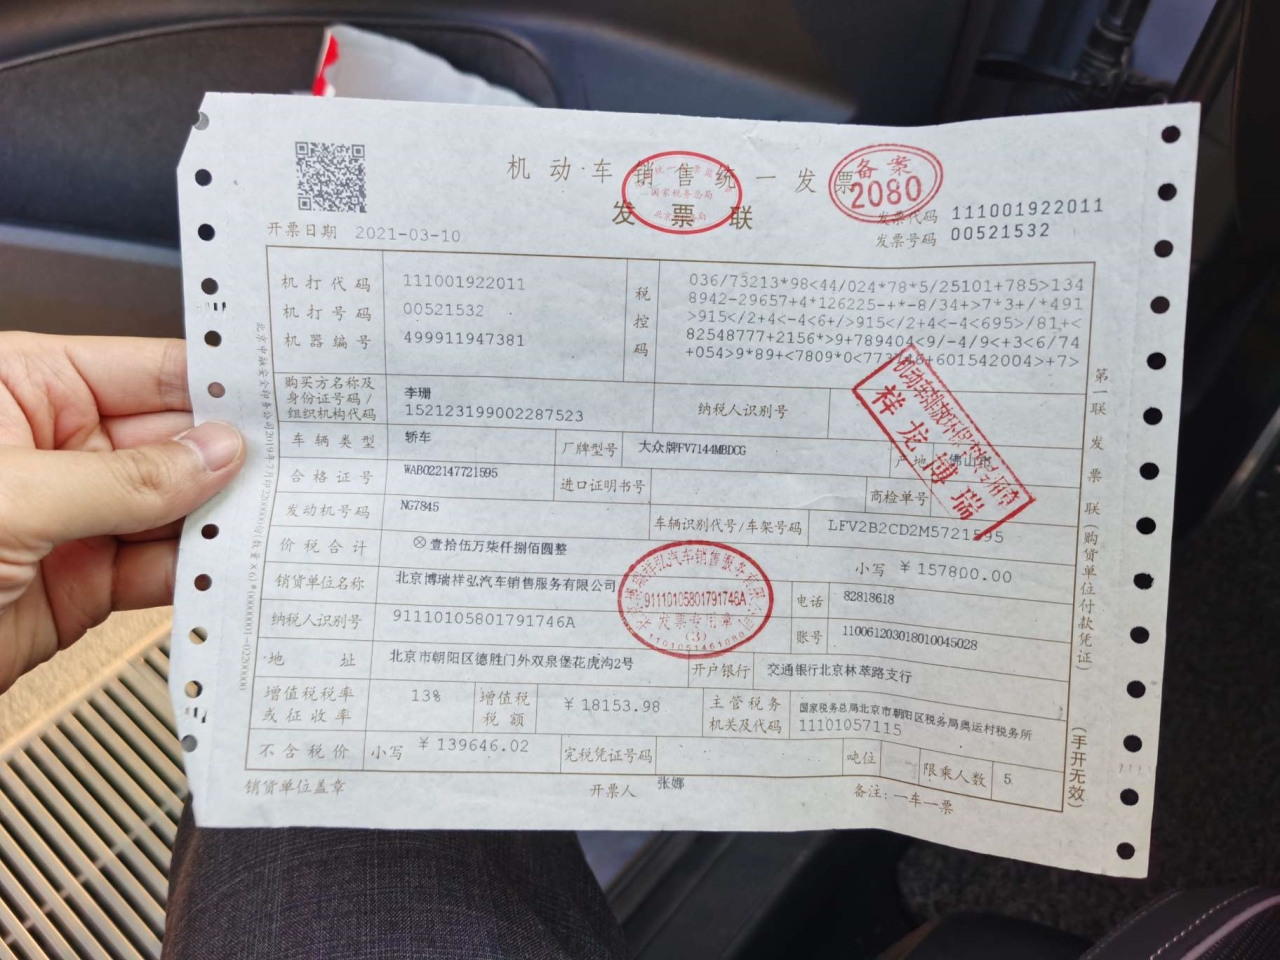 机动车销售统一发票
发票联
备案
2080
发票代码 111001922011
发票号码 00521532
开票日期 2021-03-10
机打代码 111001922011
机打号码 00521532
机器编号 499911947381
税控码
036/73213*98<44/024*78*5/25101+785>134
8942-29657+4*126225-+*-8/34+>7*3+/*491
>915</2+4<-4<6+/>915</2+4<-4<695>/81+<
82548777+2156*>9+789404<9/-4/9<+3<6/74
+054>9*89+<7809*0<773746+601542004>+7>
购买方名称及身份证号码/组织机构代码 李珊 152123199002287523 纳税人识别号
车辆类型 轿车 厂牌型号 大众牌FV7144MBDCG 产地 佛山市
合格证号 WAB022147721595 进口证明书号 商检单号
发动机号码 NG7845 车辆识别代号/车架号码 LFV2B2CD2M5721595
价税合计 ⊗壹拾伍万柒仟捌佰圆整 小写 ￥157800.00
销货单位名称 北京博瑞祥弘汽车销售服务有限公司 电话 82818618
纳税人识别号 91110105801791746A 账号 110061203018010045028
地址 北京市朝阳区德胜门外双泉堡花虎沟2号 开户银行 交通银行北京林萃路支行
增值税税率或征收率 13% 增值税税额 ￥18153.98 主管税务机关及代码 国家税务总局北京市朝阳区税务局奥运村税务所 11101057115
不含税价 小写 ￥139646.02 完税凭证号码 吨位 限乘人数 5
销货单位盖章 开票人 张娜 备注：一车一票
第一联 发票联（购货单位付款凭证）
（手开无效）
祥龙博瑞
91110105801791746A
发票专用章
（3）
国家税务总局